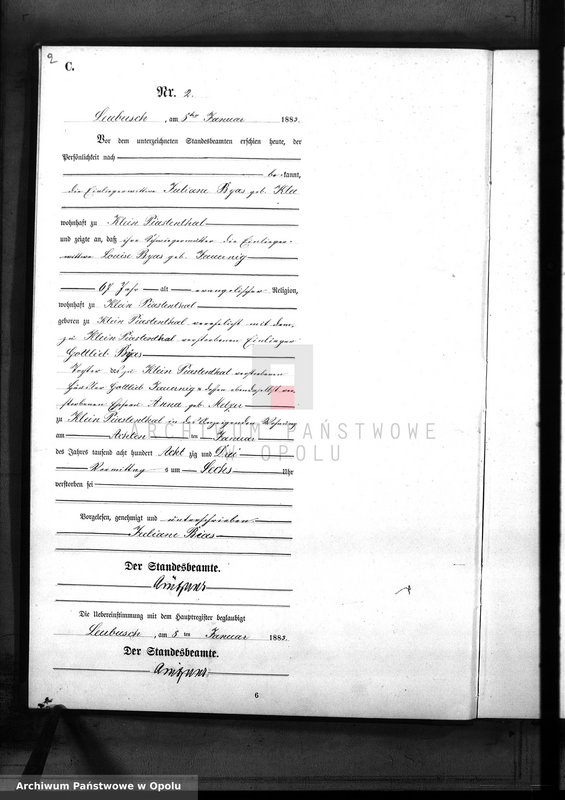 2
C.
Nr. 2.
Leubusch, am 5ten Januar 1883.
Vor dem unterzeichneten Standesbeamten erschien heute, der
Persönlichkeit nach
bekannt,
die Einliegerwittwe Juliane Byas geb. Klee
wohnhaft zu Klein Piastenthal
und zeigte an, daß ihre Schwiegermutter die Einlieger-
wittwe Louise Byas geb. Jauernig
67 Jahr alt evangelischer Religion,
wohnhaft zu Klein Piastenthal
geboren zu Klein Piastenthal verehelicht mit dem,
zu Klein Piastenthal verstorbenen Einlieger
Gottlieb Byas
Tochter des zu Klein Piastenthal verstorbenen
Häusler Gottlieb Jauernig u. dessen ebendaselbst ver-
storbenen Ehefrau Anna geb. Metzar
zu Klein Piastenthal in der Wohnung
am ten Januar
des Jahrs tausend acht hundert Acht zig und Drei
Vormittag s um Sechs Uhr
verstorben sei
Vorgelesen, genehmigt und unterschrieben
Juliane Bias
Der Standesbeamte.
Die Uebereinstimmung mit dem Hauptregister beglaubigt
Leubusch, am 5 ten Januar 1883.
Der Standesbeamte.
6
ARCHIWUM PAŃSTWOWE
W OPOLU
Archiwum Państwowe w Opolu